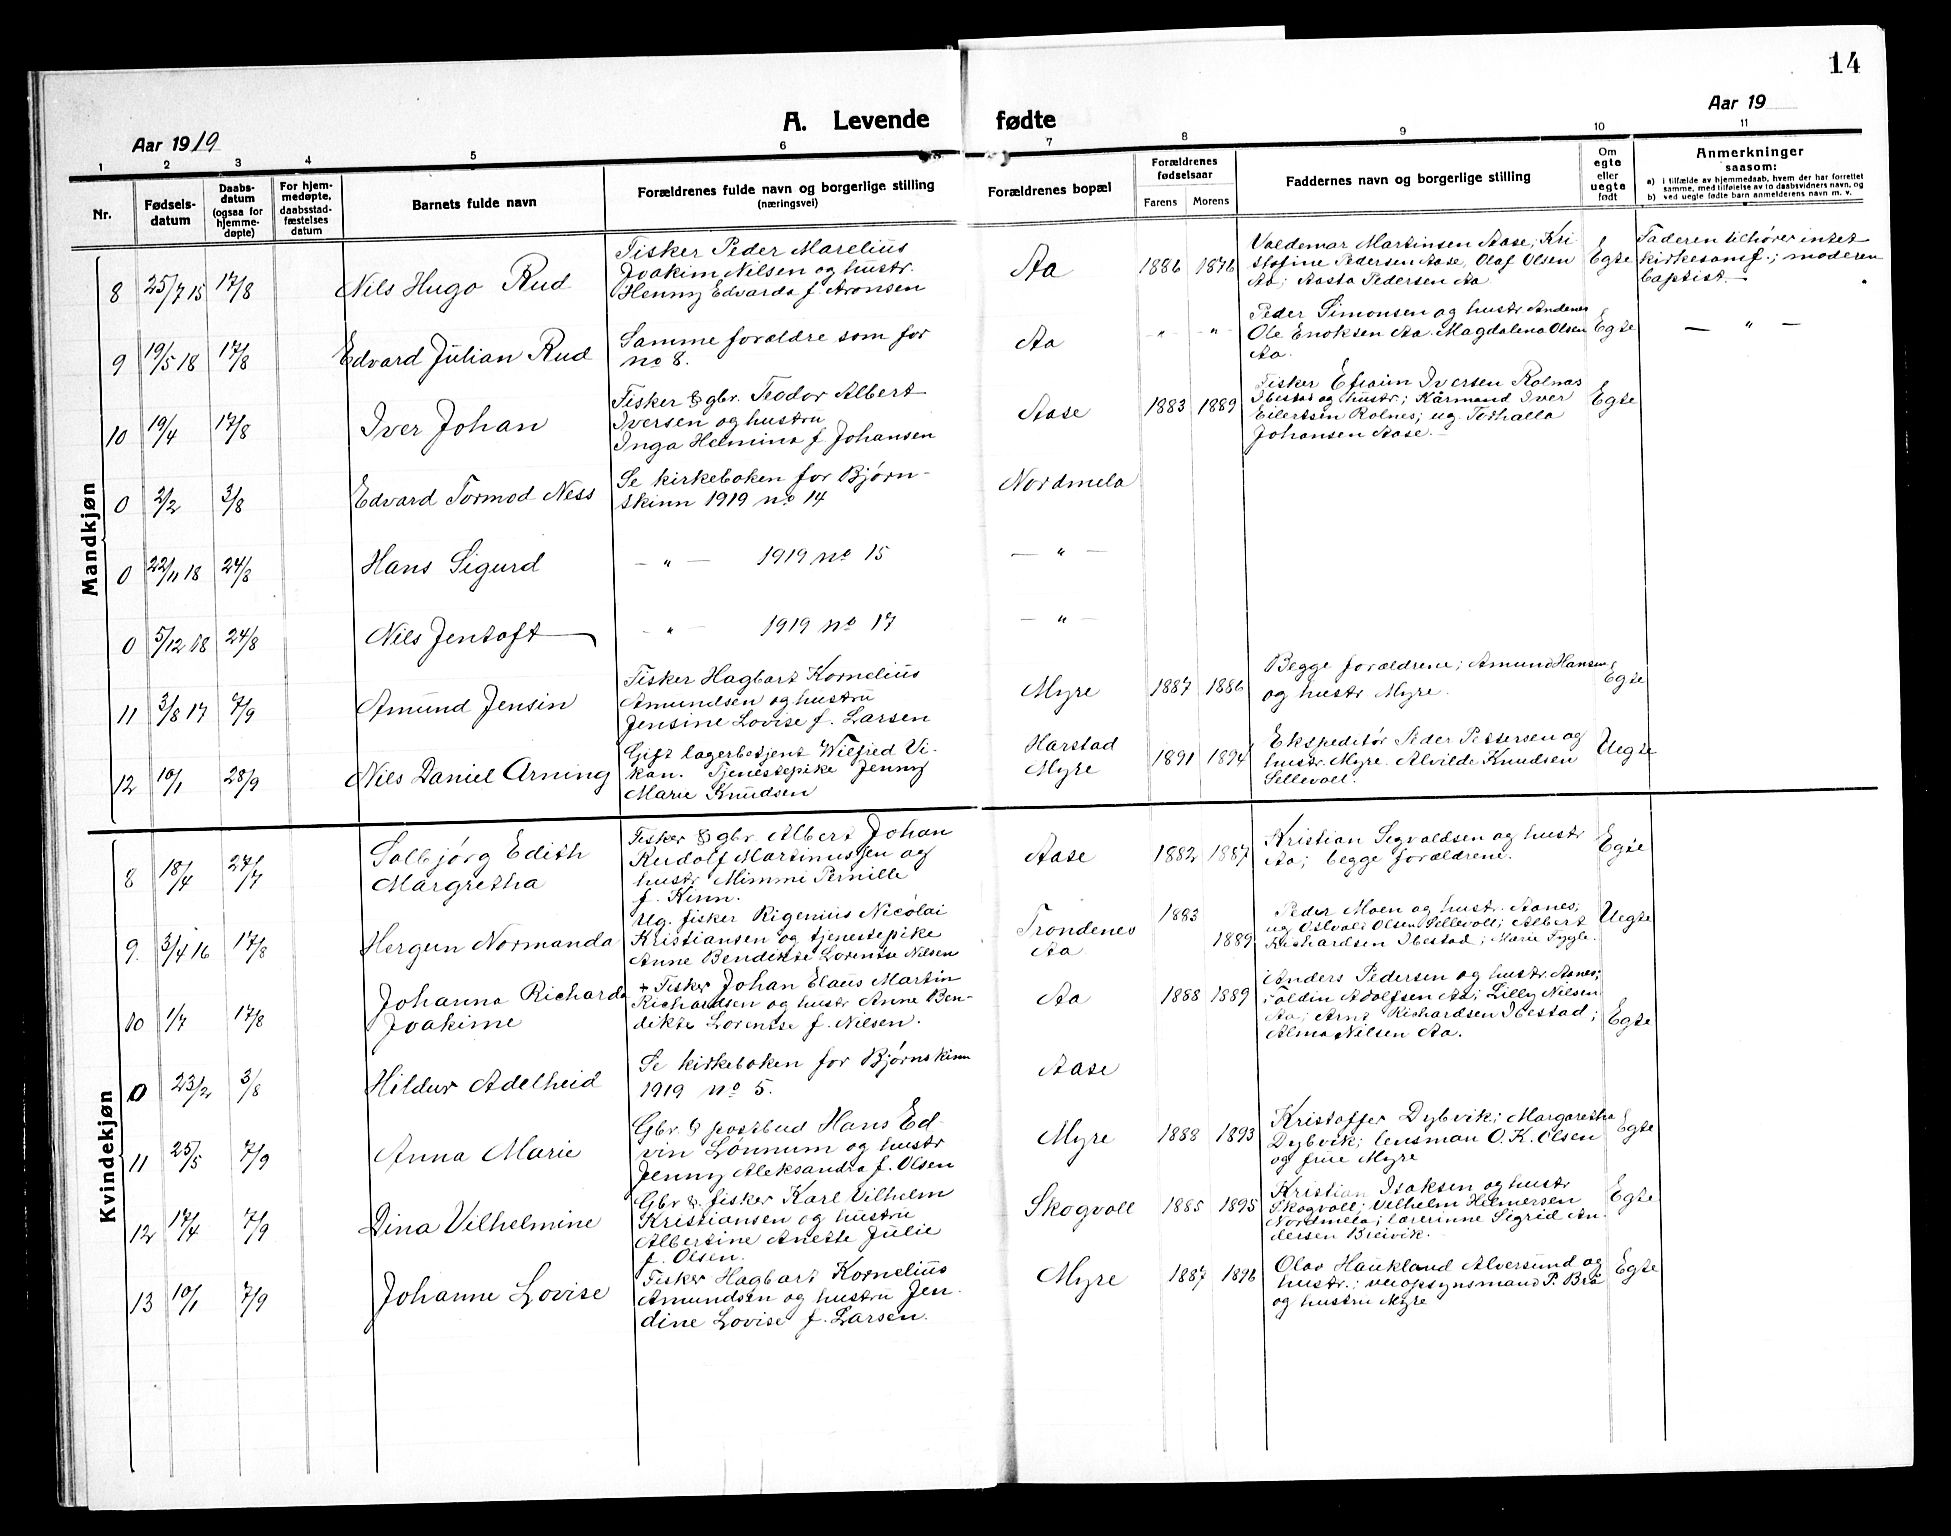 14
A. Levende fødte
Aar 1919
Aar 19
1 2 3 4 5 6 7 8 9 10 11
Nr.
Fødsels-
datum
Daabs-
datum
(ogsaa for
hjemme-
døpte)
For hjem-
medøpte,
daabsstad-
fæstelses
datum
Barnets fulde navn
Forældrenes fulde navn og borgerlige stilling
(næringsvei)
Forældrenes bopæl
Forældrenes
fødselsaar
Farens Morens
Faddernes navn og borgerlige stilling
Om
egte
eller
uegte
født
Anmerkninger
saasom:
a) i tilfælde av hjemmedaab, hvem der har forrettet
samme, med tilføielse av to daabsvidners navn, og
b) ved uegte fødte barn anmelderens navn m. v.
Mandkjøn
8 25/7 15 17/8 Nils Hugo Rud
Fisker Peder Marelius
Joakim Nilsen og hustr.
Henny Edvarda f. Aronsen
Aa 1886 1876
Valdemar Martinsen Aase; Kri
stofine Pedersen Aase, Olaf Olsen
Aa; Aasta Pedersen Aa
Egte
Faderen tilhører intet
kirkesamf.; moderen
baptist.
9 19/5 18 17/8 Edvard Julian Rud
Samme forældre som for
no 8.
Aa " "
Peder Simonsen og hustr Andenes
Ole Enoksen Aa. Magdalena Olsen
Aa.
Egte — " —
10 19/4 17/8 Iver Johan
Fisker & gbr. Teodor Albert
Iversen og hustru
Inga Helmina f. Johansen
Aase 1883 1889
Fisker Efraim Iversen Rolnas
Ibestad og hustr; Kårmand Iver
Eilertsen Rolnes; ug. Torhalla
Johansen Aase. —
Egte
0 2/2 3/8 Edvard Tormod Ness
Se kirkeboken for Bjørn-
skinn 1919 no 14
Nordmela
0 22/11 18 24/8 Hans Sigurd — " — 1919 no 15 — " —
0 5/12 18 24/8 Nils Jentoft — " — 1919 no 17 — " —
11 3/8 17 7/9 Amund Jensin
Fisker Hagbart Kornelius
Amundsen og hustru
Jensine Lovise f. Larsen
Myre 1887 1886
Begge forældrene; Amund Hansen
og hustr Myre.
Egte
12 10/1 28/9 Nils Daniel Arning
Gift lagerbetjent Wilfred Vi-
kan. Tjenestepike Jenny
Marie Knudsen
Harstad
Myre
1891 1894
Ekspeditør Peder Pettersen og
hustr. Myre. Alvilde Knudsen
Sellevoll.
Uegte
Kvindekjøn
8 18/4 27/7 Solbjørg Edith
Margretha
Fisker & gbr. Albert Johan
Rudolf Martinussen og
hustr Mimmi Pernille
f. Kinn.
Aase 1882 1887
Kristian Sigvaldsen og hustr
Aa; begge forældrene.
Egte
9. 3/4 16 17/8 Hergun Normanda
Ug. fisker Rigenius Nicolai
Kristiansen og tjenestepike
Anne Bendikte Lorentse Nilsen
Trondenes
Aa
1883
1889
Peder Moen og hustr. Aanes;
ug Olsen Sellevoll; Albert
Richardsen Ibestad; Marie Fygle.
Uegte
10 1/7 17/8 Johanna Richarda
Joakime
+ Fisker Johan Elaus Martin
Richardsen og hustr Anne Ben-
dikte Lorentse f. Nilsen.
Aa 1888 1889
Anders Pedersen og hustr. Aanes;
Adolfsen Aa; Lilly Nilsen
Aa; Arnt Richardsen Ibestad;
Alma Nilsen Aa.
Egte
0 23/2 3/8 Hildur Adelheid
Se kirkeboken for Bjørnskinn
1919 no 5.
Aase
11 25/5 7/9 Anna Marie
Gbr. & postbud Hans Ed-
vin Lønnum og hustr
Jenny Aleksandra f. Olsen
Myre 1888 1893
Kristoffer Dybvik; Margaretha
Dybvik; lensman O. K. Olsen
og frue Myre
Egte
12 17/4 7/9 Dina Vilhelmine
Gbr. & fisker Karl Vilhelm
Kristiansen og hustru
Albertine Anette Julie
f. Olsen.
Skogvoll 1885 1895
Kristian Isaksen og hustr
Skogvoll; Vilhelm Helmersen
Nordmela; lærerinne Sigrid An-
dersen Breivik.
Egte
13 10/1 7/9 Johanne Lovise
Fisker Hagbart Kornelius
Amundsen og hustru Jen-
dine Lovise f. Larsen.
Myre 1887 1896
Olav Haukland Alversund og
hustr.; veiopsynsmand P. Bre
og hustru Myre
Egte